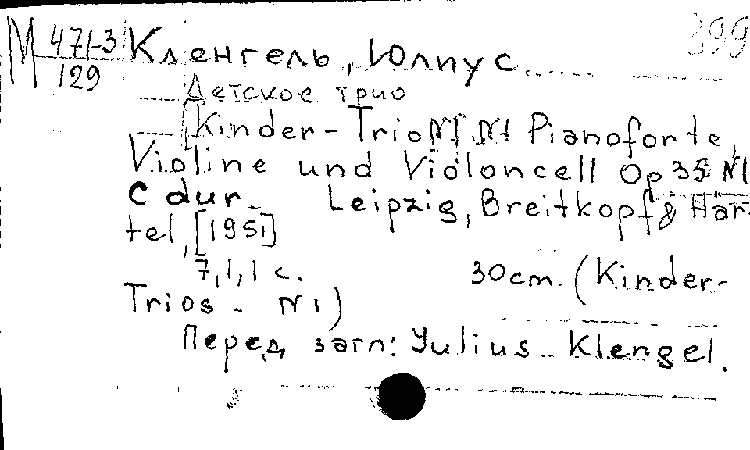 М 471-3/129 Кленгель, Юлиус 399
Детское трио
[Kinder-Trio N1 Pianoforte,
Violine und Violoncell Op 35 N1
C dur. Leipzig, Breitkopf & Här-
tel, [1951]
7,1,1 с. 30 cm. (Kinder-
Trios - N1)
Перед загл: Yulius Klengel.